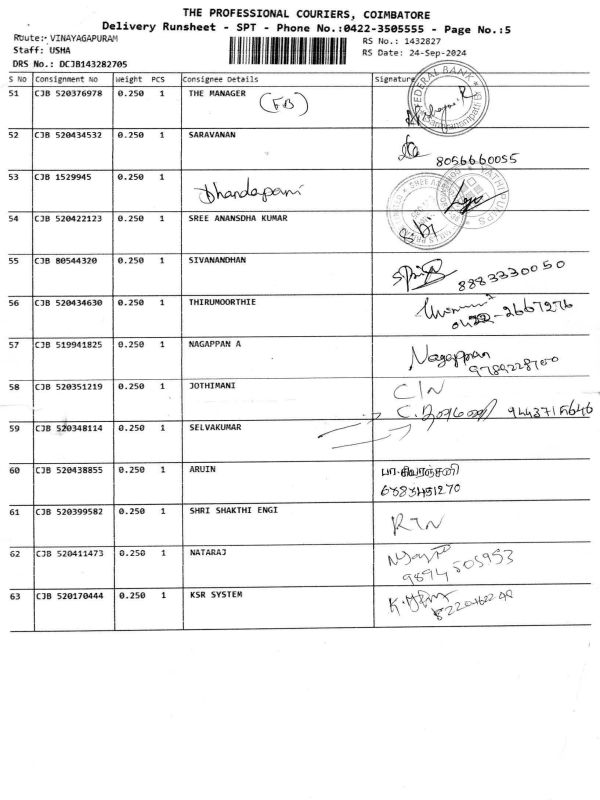 THE PROFESSIONAL COURIERS, COIMBATORE
Delivery Runsheet - SPT - Phone No.:0422-3505555 - Page No.:5
Route:- VINAYAGAPURAM RS No.: 1432827
Staff: USHA RS Date: 24-Sep-2024
DRS No.: DCJB143282705
S No Consignment No Weight PCS Consignee Details Signature
51 CJB 520376978 0.250 1 THE MANAGER (FB) FEDERAL BANK
52 CJB 520434532 0.250 1 SARAVANAN
8056660055
53 CJB 1529945 0.250 1 Dhandapani
54 CJB 520422123 0.250 1 SREE ANANSDHA KUMAR
55 CJB 80544320 0.250 1 SIVANANDHAN
8883330050
56 CJB 520434630 0.250 1 THIRUMOORTHIE
0422-2667276
57 CJB 519941825 0.250 1 NAGAPPAN A Nagappan
58 CJB 520351219 0.250 1 JOTHIMANI C/N
59 CJB 520348114 0.250 1 SELVAKUMAR
60 CJB 520438855 0.250 1 ARUIN
61 CJB 520399582 0.250 1 SHRI SHAKTHI ENGI RTN
62 CJB 520411473 0.250 1 NATARAJ
9894505953
63 CJB 520170444 0.250 1 KSR SYSTEM